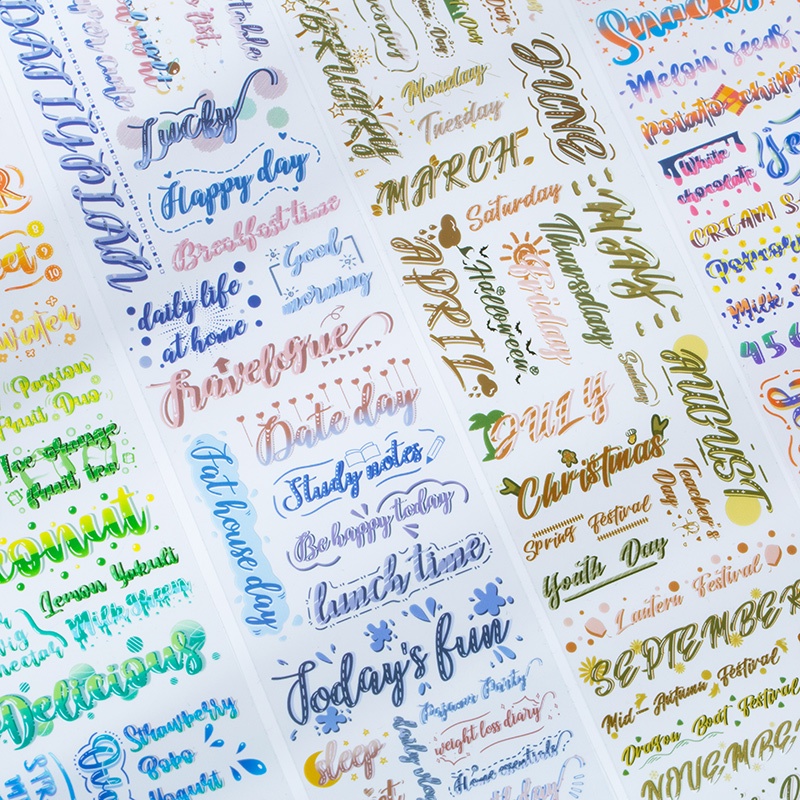 DAILYPLAN
Lucky
Happy day
Breakfast time
Good
morning
daily life
at home
Travelogue
Date day
Fat house day
Study notes
Be happy today
lunch time
Today's fun
Pajama Party
sleep
weight loss diary
Home essentials
Passion
Fruit Duo
Ice orange
fruit tea
Lemon Yakult
Milk Green
Delicious
Strawberry
Bobo
Yogurt
Monday
Tuesday
JUNE
MARCH
Saturday
APRIL
Halloween
Friday
Thursday
Sunday
JULY
AUGUST
Christmas
Teacher's
Day
Spring Festival
Youth Day
Lantern Festival
SEPTEMBER
Mid-Autumn Festival
Dragon Boat Festival
NOVEMBE
Snacks
Melon seeds
Potato chips
White
chocolate
CREAM S
Popcor
Milk
456